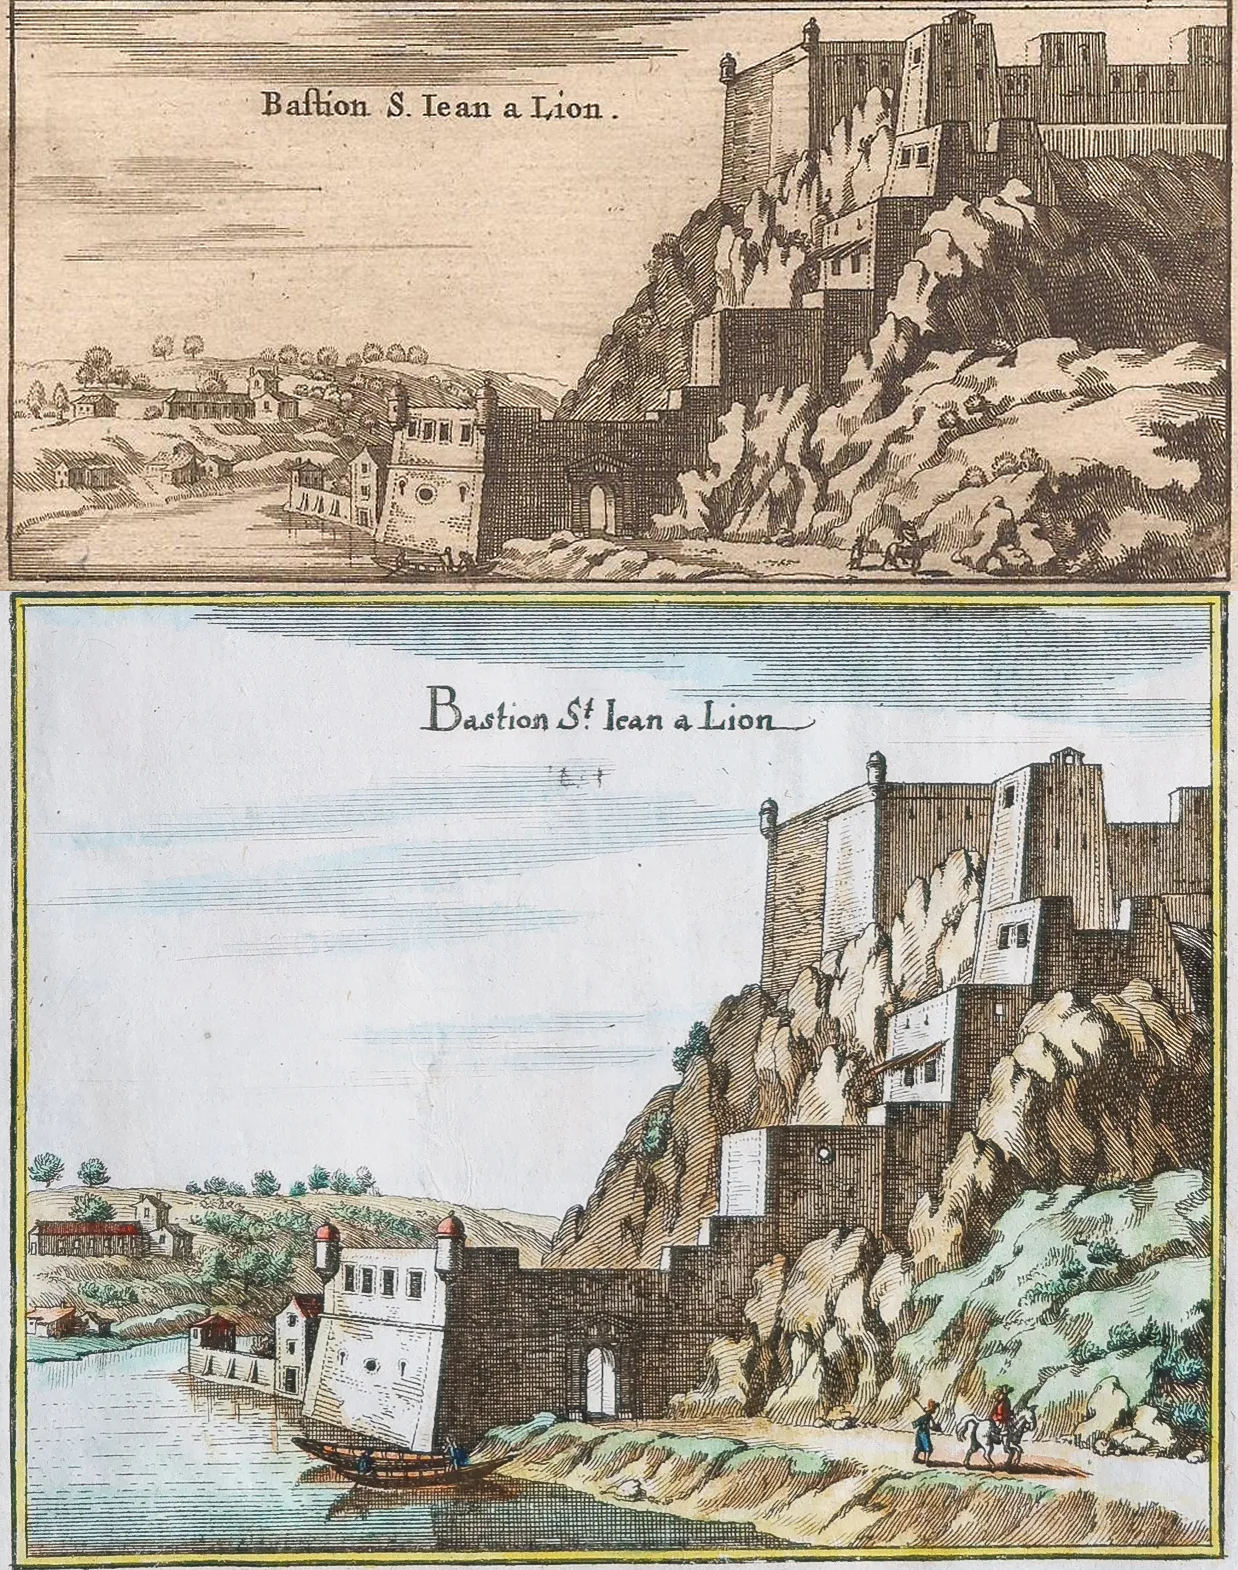 Baſtion S. Iean a Lion.
Bastion St. Iean a Lion